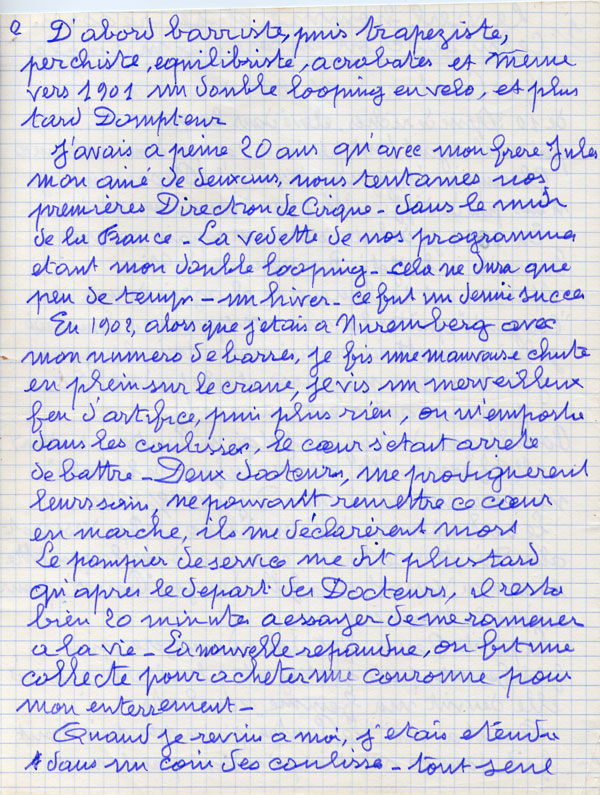 2 D'abord barriste, puis trapeziste,
perchiste, equilibriste, acrobates et même
vers 1901 un double looping en velo, et plus
tard Dompteur
J'avais a peine 20 ans qu'avec mon frere Jules
mon ainé de deux ans, nous tentames nos
premières Direction de Cirque - dans le midi
de la France - La vedette de nos programmes
etant mon double looping - cela ne dura que
peu de temps - un hiver - ce fut un demi succes
En 1902, alors que j'etais a Nuremberg avec
mon numero de barres, je fis une mauvaise chute
en plein sur le crane, je vis un merveilleux
feu d'artifice, puis plus rien, on m'emporta
dans les coulisses, le cœur s'etait arreté
de battre - Deux docteurs, me prodiguerent
leurs soins, ne pouvant remettre ce cœur
en marche, ils me déclarèrent mort
Le pompier de service me dit plus tard
qu'apres le depart des Docteurs, il resta
bien 20 minutes a essayer de me ramener
a la vie - La nouvelle repandue, on fit une
collecte pour acheter une couronne pour
mon enterrement -
Quand je revins a moi, j'etais etendu
dans un coin des coulisses - tout seul